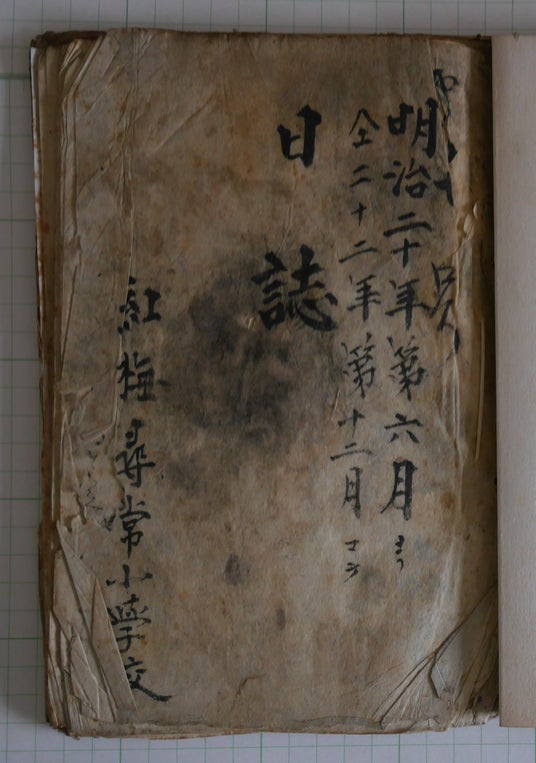 明治二十年第六月ヨリ
仝二十二年第十二月マテ
日誌
紅梅尋常小學校